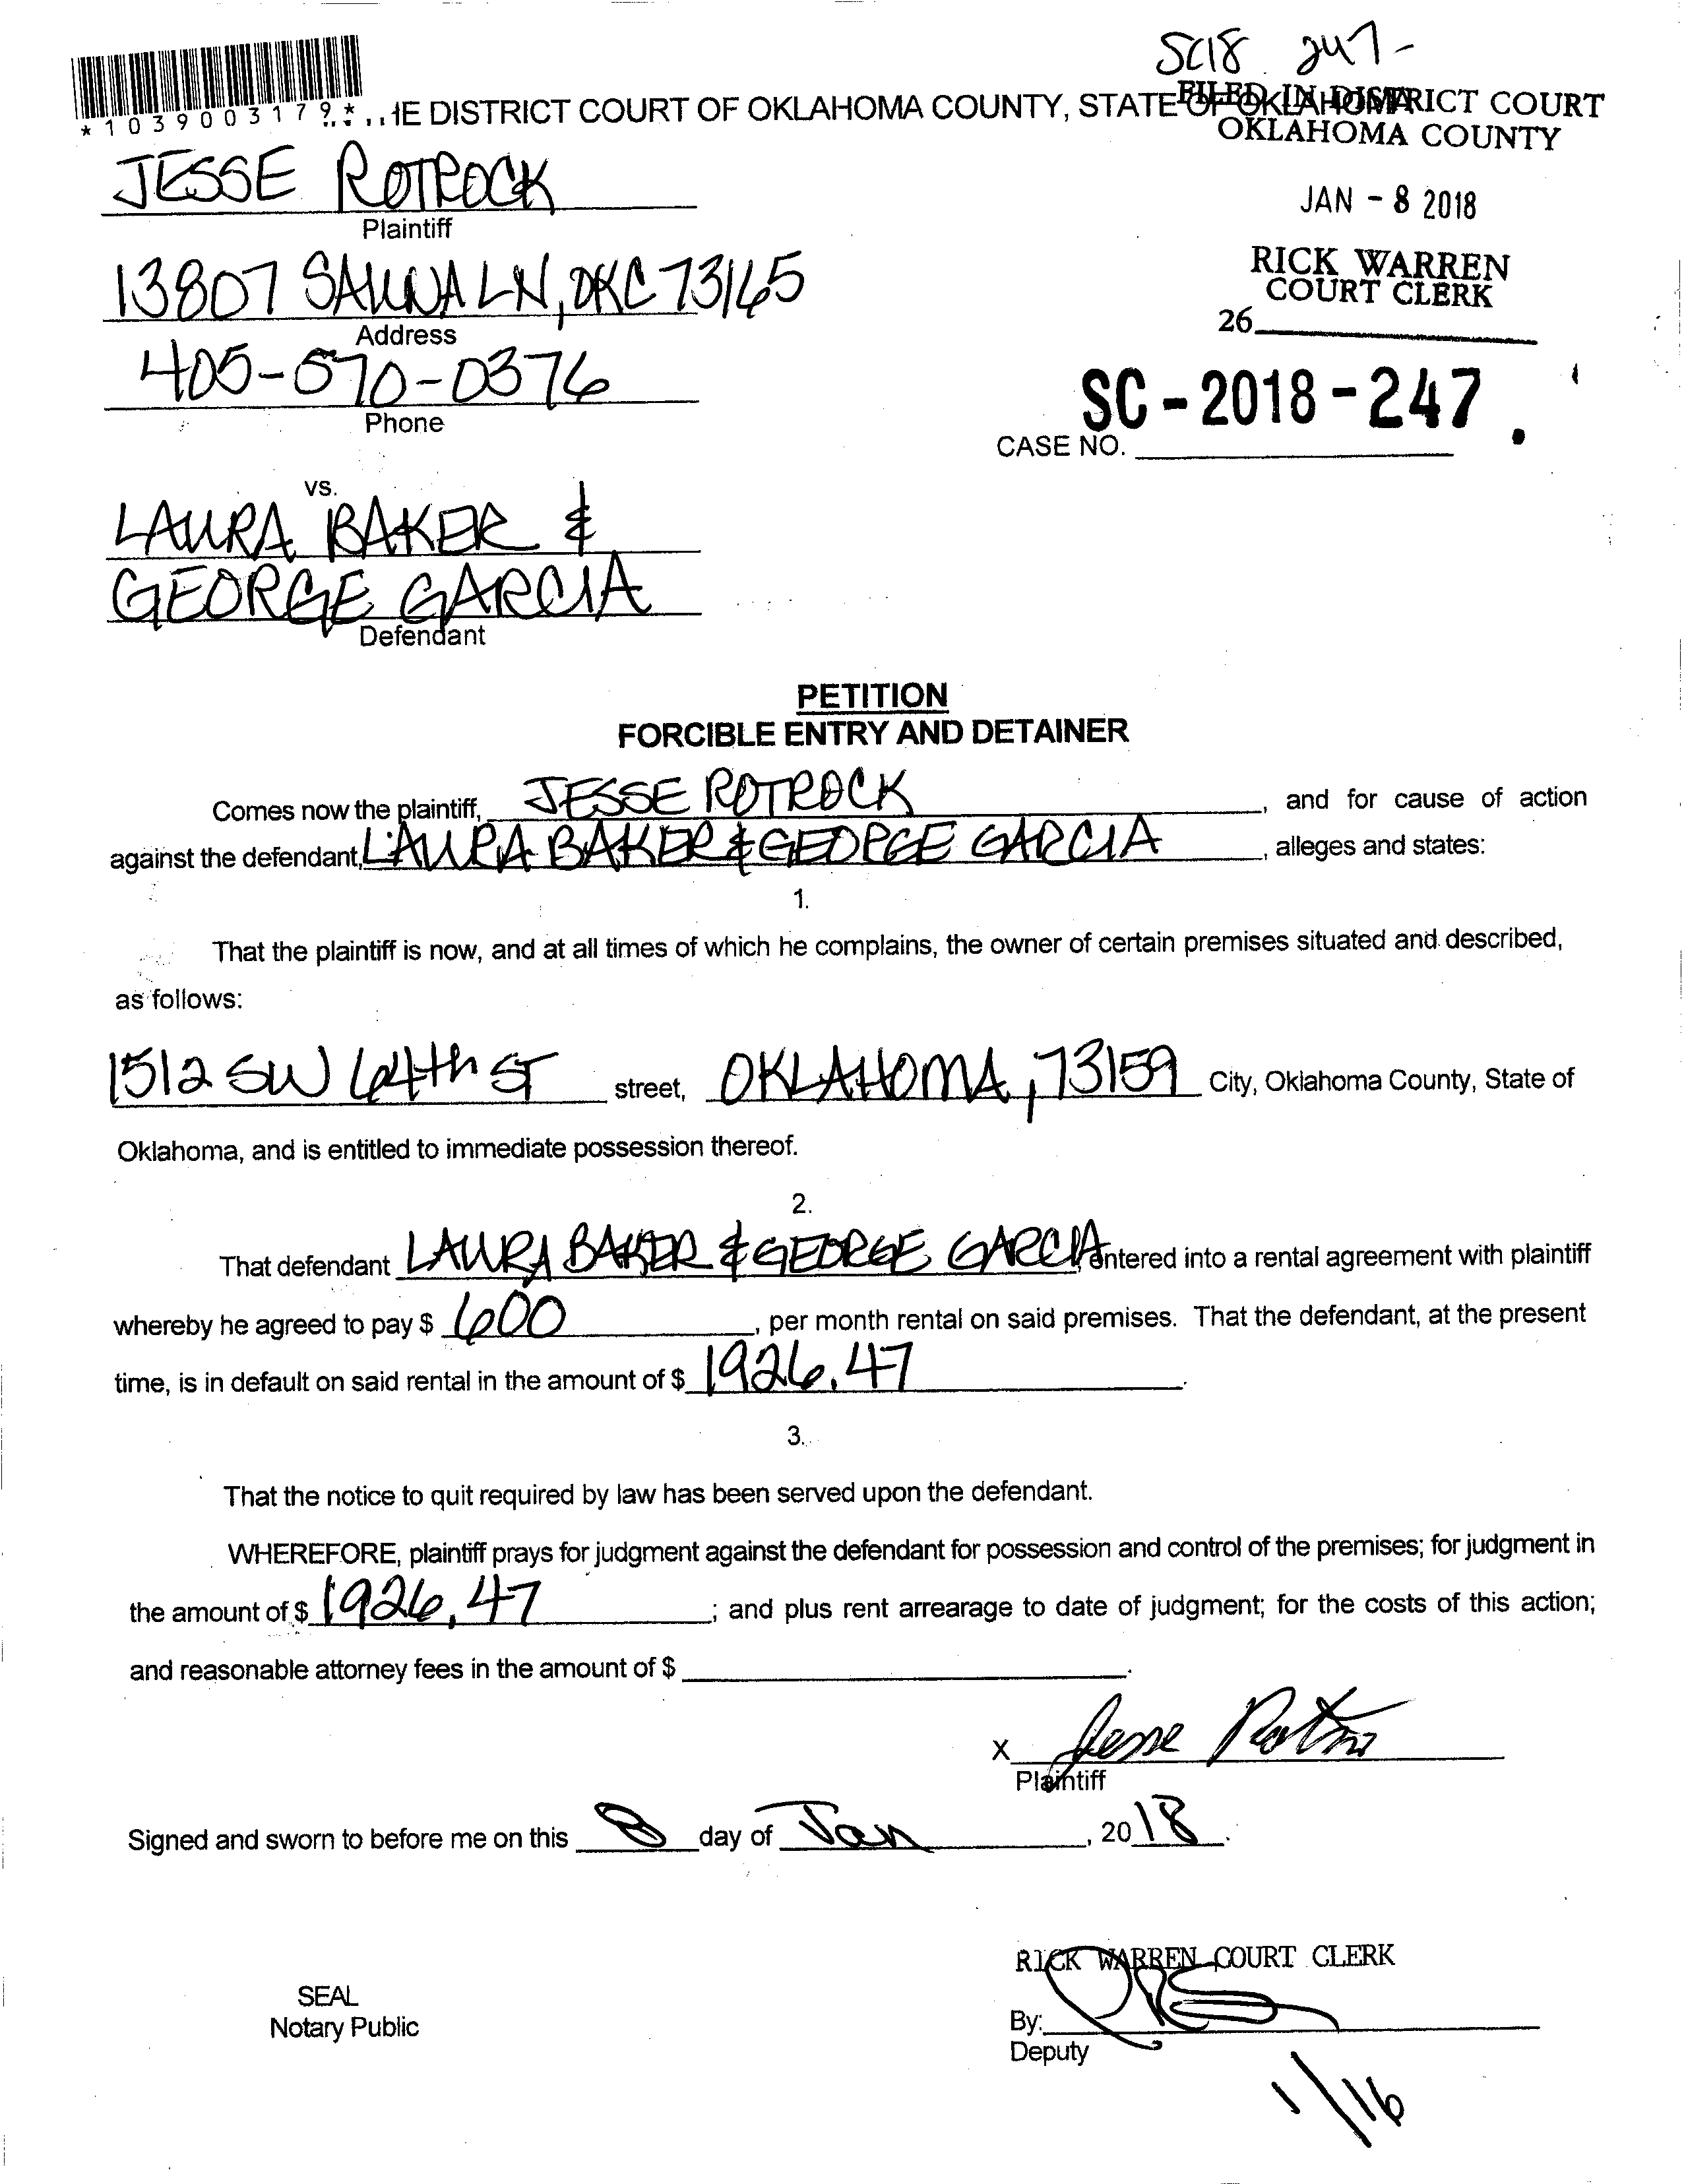 SC18 247-
*1039003179*
IE DISTRICT COURT OF OKLAHOMA COUNTY, STATE OF OKLAHOMA
FILED IN DISTRICT COURT
OKLAHOMA COUNTY
JESSE ROTROCK
Plaintiff
JAN - 8 2018
13807 LN, OKC 73165
Address
RICK WARREN
COURT CLERK
26
405-570-0376
Phone
SC - 2018 - 247
CASE NO.
vs.
LAURA BAKER &
GEORGE GARCIA
Defendant
PETITION
FORCIBLE ENTRY AND DETAINER
Comes now the plaintiff, JESSE ROTROCK, and for cause of action
against the defendant, LAURA BAKER & GEORGE GARCIA, alleges and states:
1.
That the plaintiff is now, and at all times of which he complains, the owner of certain premises situated and described,
as follows:
1512 SW 64th ST street, OKLAHOMA, 73159 City, Oklahoma County, State of
Oklahoma, and is entitled to immediate possession thereof.
2.
That defendant LAURA BAKER & GEORGE GARCIA entered into a rental agreement with plaintiff
whereby he agreed to pay $ 600, per month rental on said premises. That the defendant, at the present
time, is in default on said rental in the amount of $ 1926.47.
3.
That the notice to quit required by law has been served upon the defendant.
WHEREFORE, plaintiff prays for judgment against the defendant for possession and control of the premises; for judgment in
the amount of $ 1926.47; and plus rent arrearage to date of judgment; for the costs of this action;
and reasonable attorney fees in the amount of $ .
X Jesse
Plaintiff
Signed and sworn to before me on this 8 day of Jan, 2018.
RICK WARREN COURT CLERK
SEAL
Notary Public
By:
Deputy
1/16